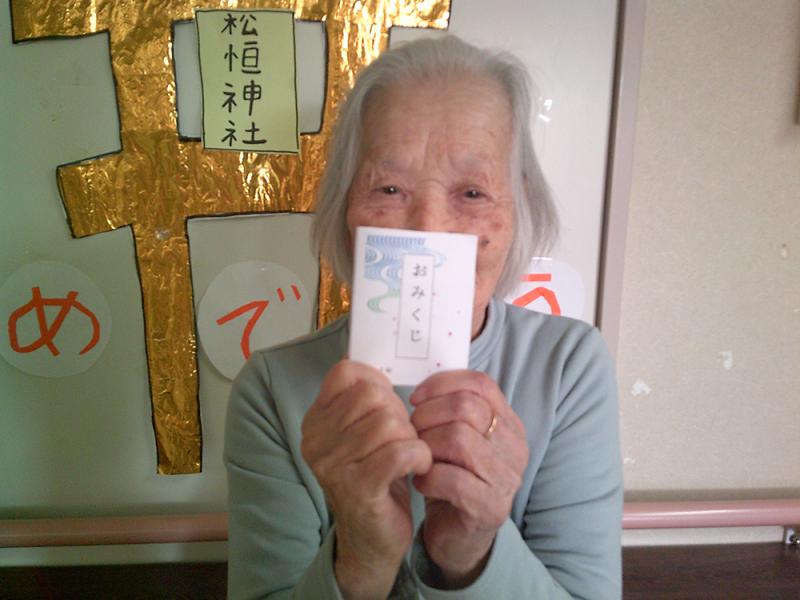 松恒神社
おみくじ
めで
う